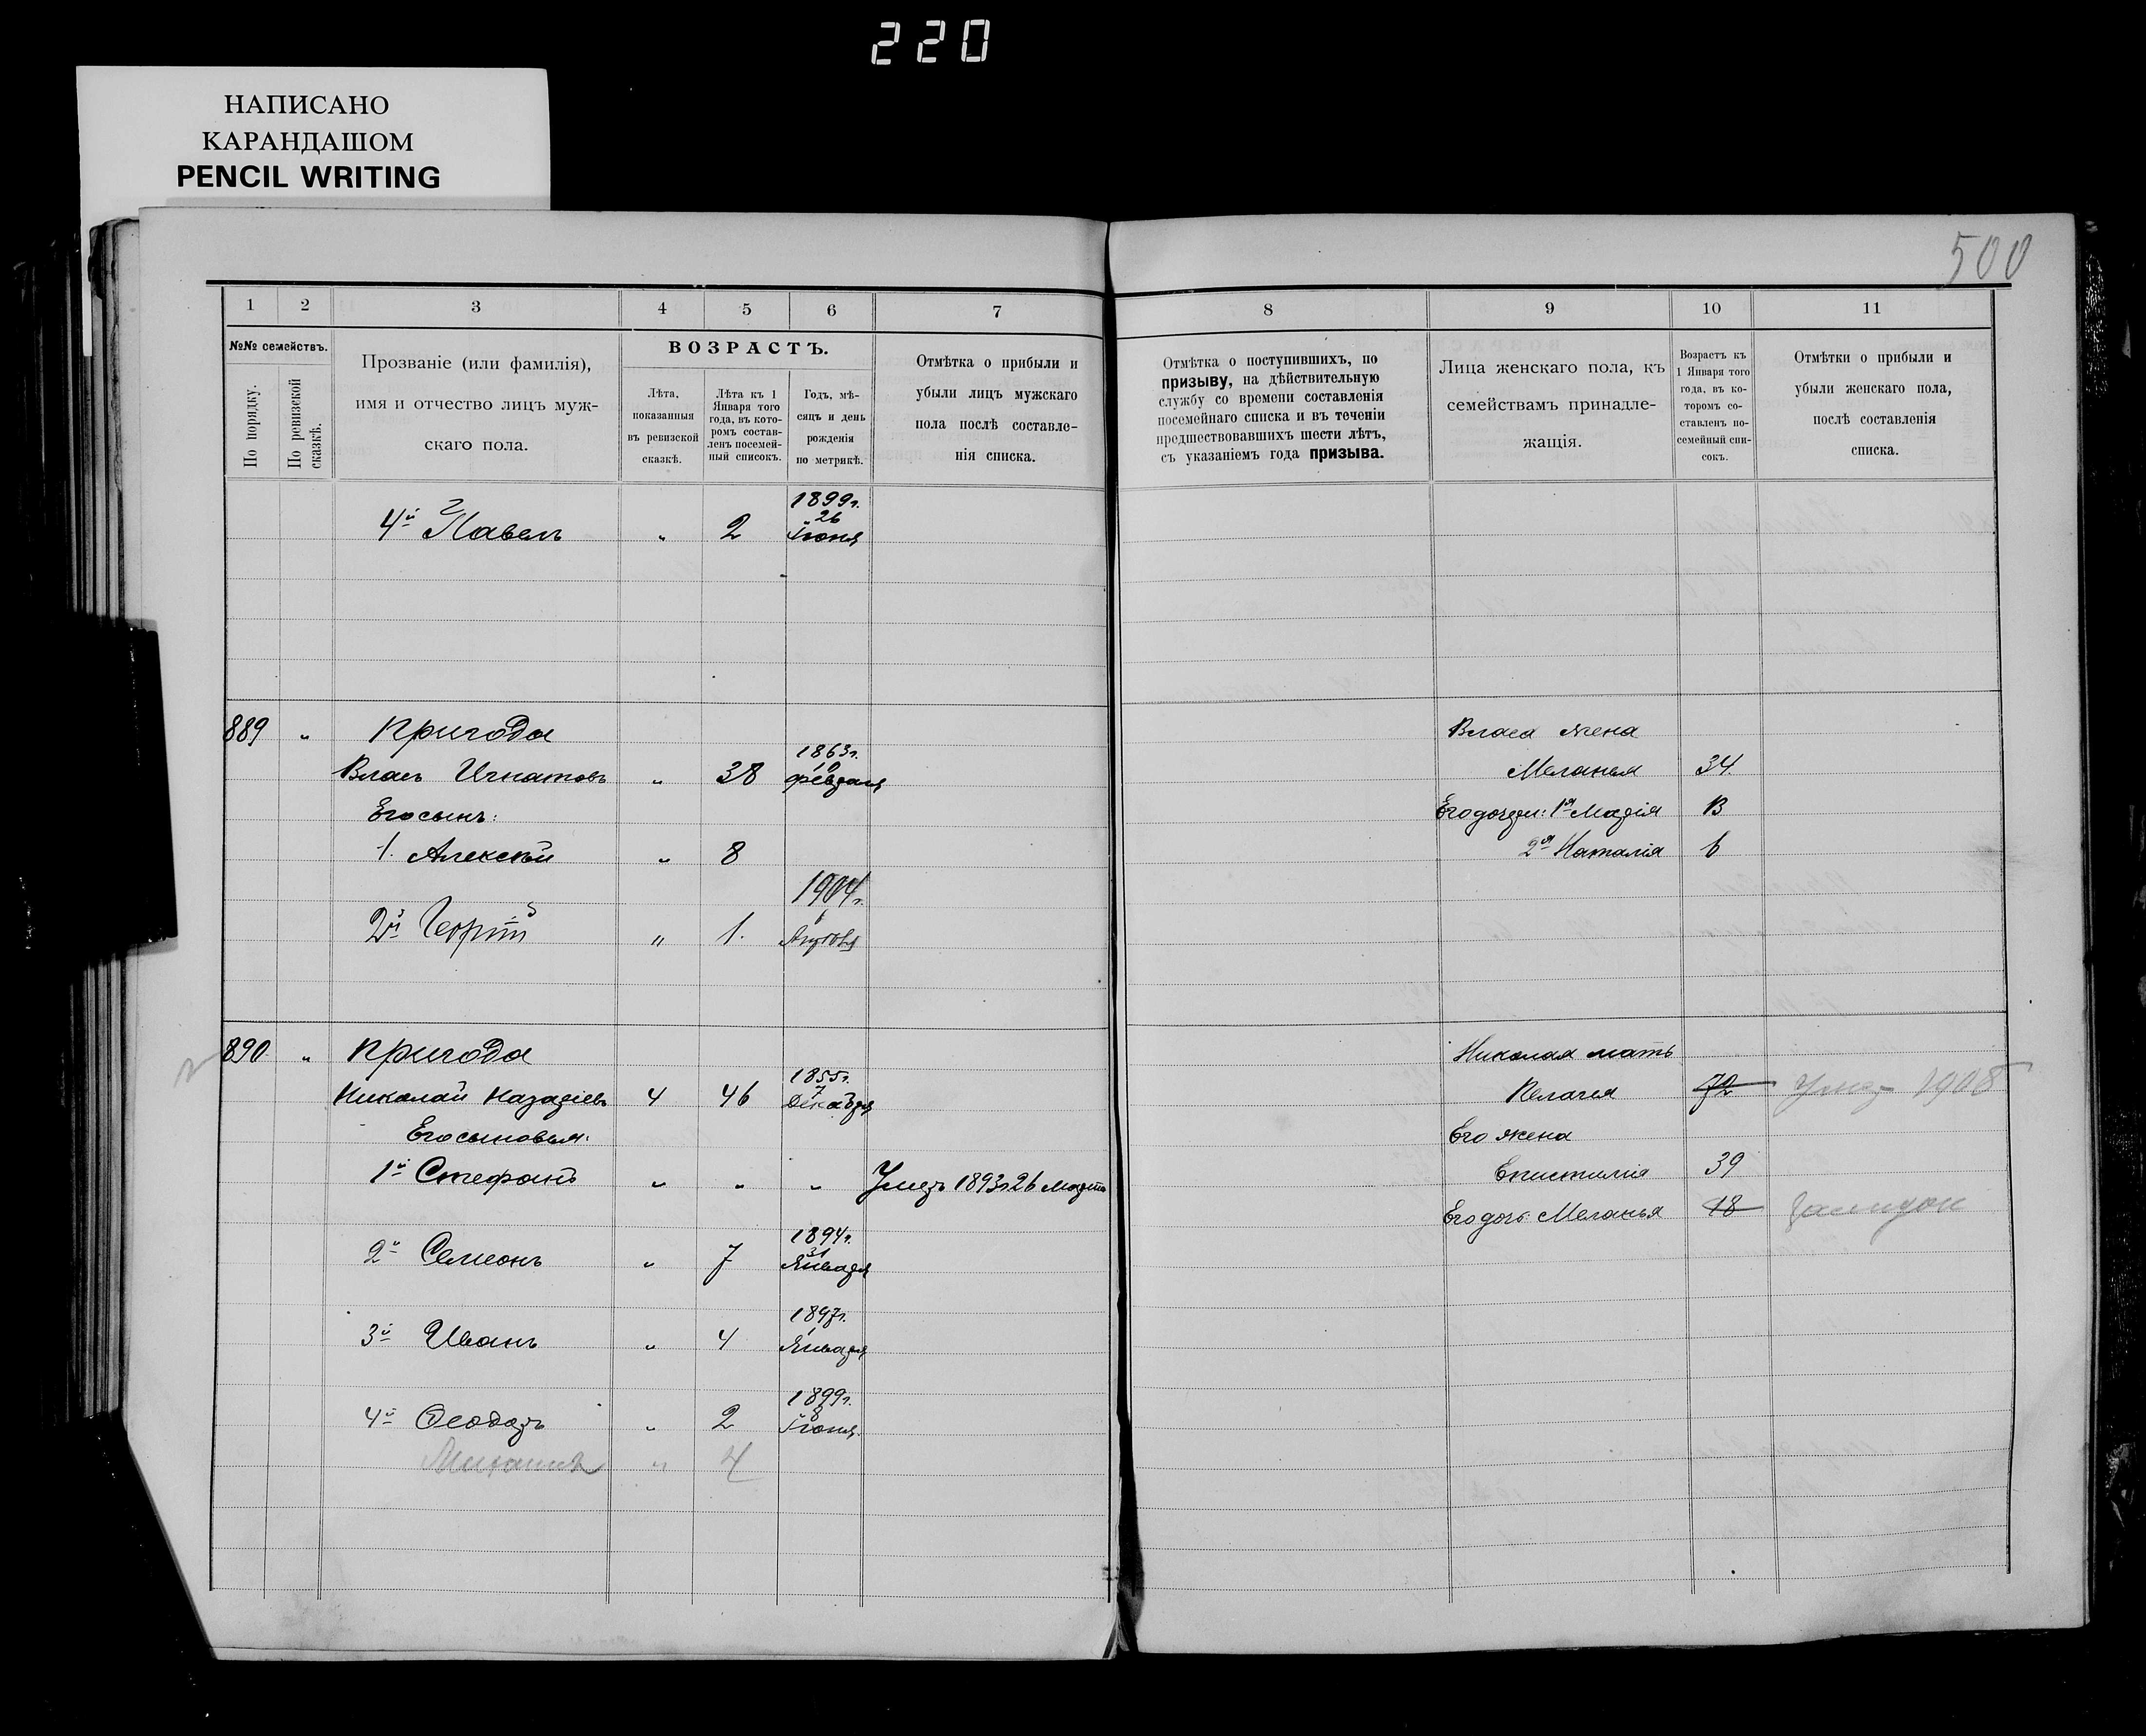 220
НАПИСАНО
КАРАНДАШОМ
PENCIL WRITING
500
1 2 3 4 5 6 7 8 9 10 11
№№ семействъ.
По порядку.
По ревизской сказкѣ.
Прозваніе (или фамилія),
имя и отчество лицъ муж-
скаго пола.
ВОЗРАСТЪ.
Лѣта,
показанныя
въ ревизской
сказкѣ.
Лѣта къ 1
Января того
года, въ кото-
ромъ состав-
ленъ посемей-
ный списокъ.
Годъ, мѣ-
сяцъ и день
рожденія
по метрикѣ.
Отмѣтка о прибыли и
убыли лицъ мужскаго
пола послѣ составле-
нія списка.
Отмѣтка о поступившихъ, по
призыву, на дѣйствительную
службу со времени составленія
посемейнаго списка и въ теченіи
предшествовавшихъ шести лѣтъ,
съ указаніемъ года призыва.
Лица женскаго пола, къ
семействамъ принадле-
жащія.
Возрастъ къ
1 Января того
года, въ ко-
торомъ со-
ставленъ по-
семейный спи-
сокъ.
Отмѣтки о прибыли и
убыли женскаго пола,
послѣ составленія
списка.
4й Павелъ " 2 1899г. 26 Іюня
889 " Пригода
Власъ Игнатовъ " 38 1863г. Февраля
Его сынъ:
1. Алексѣй " 8
2й Георгій " 1. 1904г.
Власа жена
Меланья 34
Его дочери: 1я Марія 13
2я Наталія 6
890 " Пригода
Николай Назаріевъ 4 46 1855г. 7 Декабря
Его сыновья:
1й Стефанъ " " " Умеръ 1893г. 26 Марта
2й Семеонъ " 7 1894г. 31 Января
3й Иванъ " 4 1897г. 1 Января
4й Ѳеодоръ " 2 1899г. 8 Іюня
Михаилъ " 4
Николая мать
Пелагея 72 Умер 1908
Его жена
Епистимія 39
Его дочь: Меланья 18